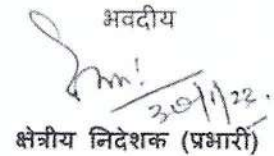 भवदीय
30/1/22.
क्षेत्रीय निदेशक (प्रभारी)